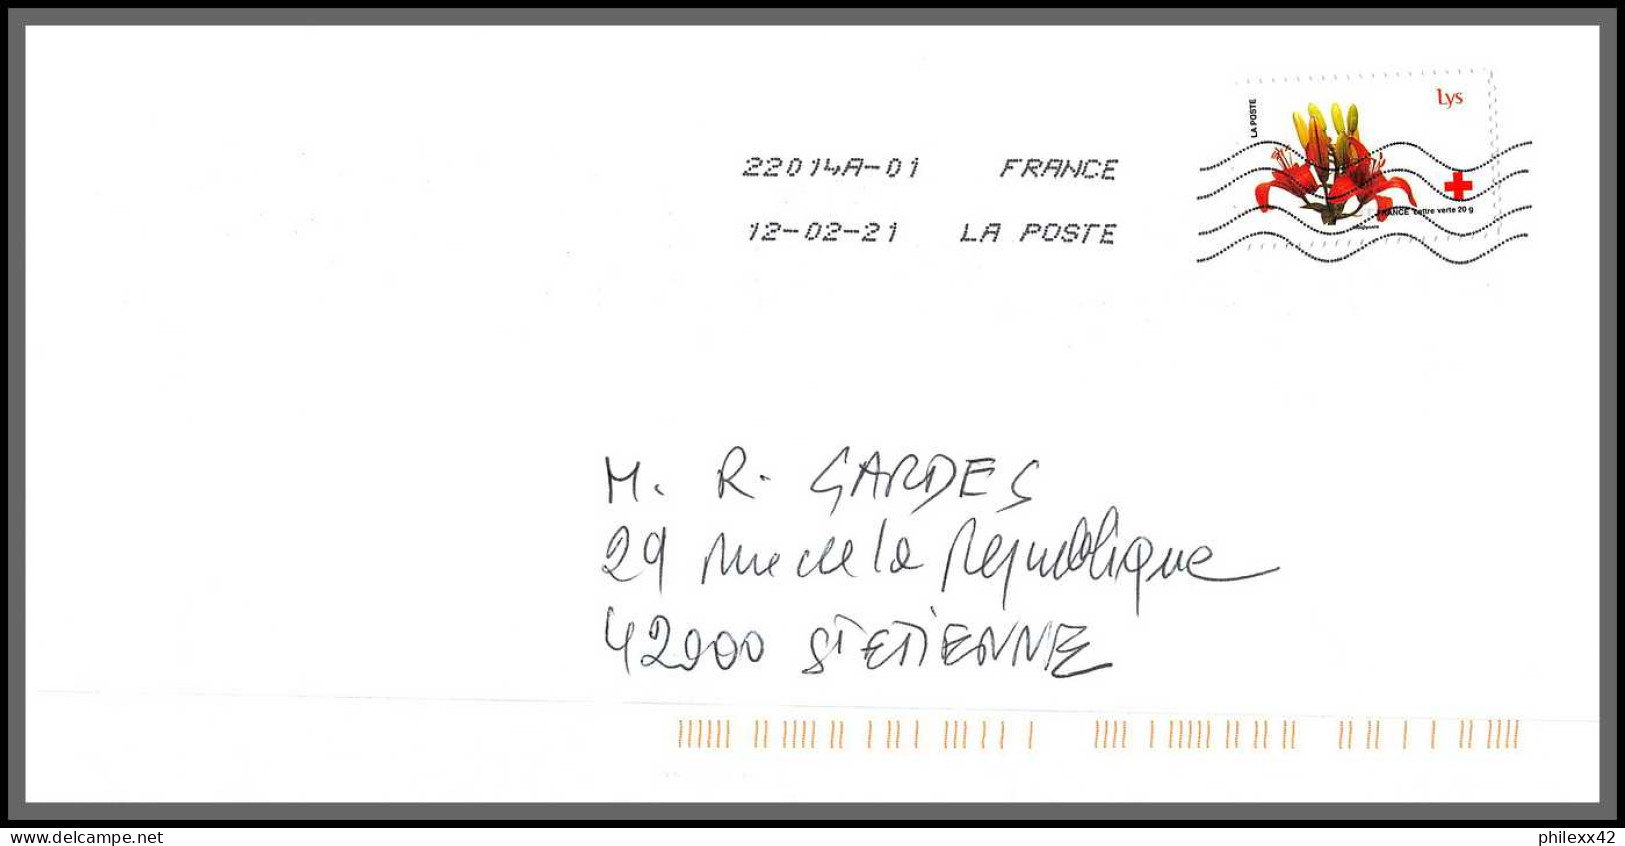 Lys
LA POSTE
22014A-01 FRANCE
FRANCE Lettre verte 20 g
12-02-21 LA POSTE
M. R. GARDES
29 rue de la République
42000 ST ETIENNE
www.delcampe.net
philexx42